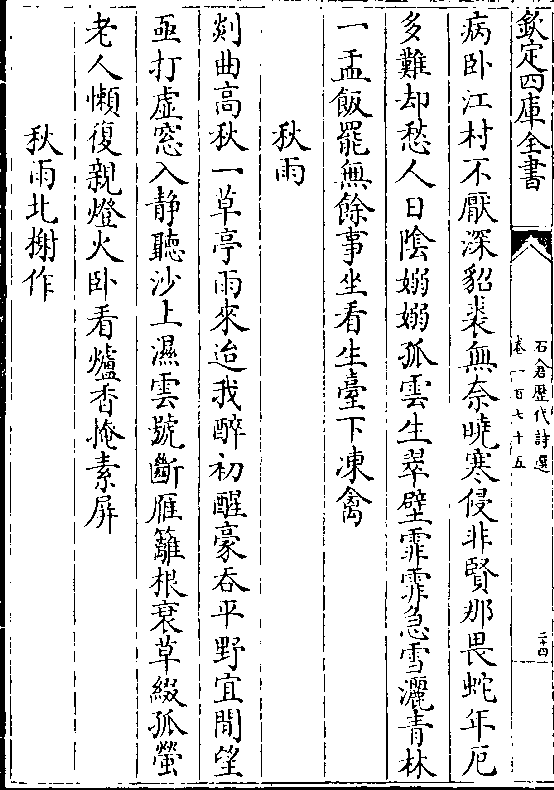 欽定四庫全書
石倉歴代詩選
卷一百七十五
二十四
病卧江村不厭深貂裘無奈曉寒侵非賢那畏蛇年厄
多難却愁人日陰嫋嫋孤雲生翠壁霏霏急雪灑青林
一盂飯罷無餘事坐看生臺下凍禽
秋雨
剡曲高秋一草亭雨來迨我醉初醒豪吞平野宜閒望
亟打虚窓入静聽沙上濕雲號斷雁籬根衰草綴孤螢
老人懶復親燈火卧看爐香掩素屏
秋雨北榭作